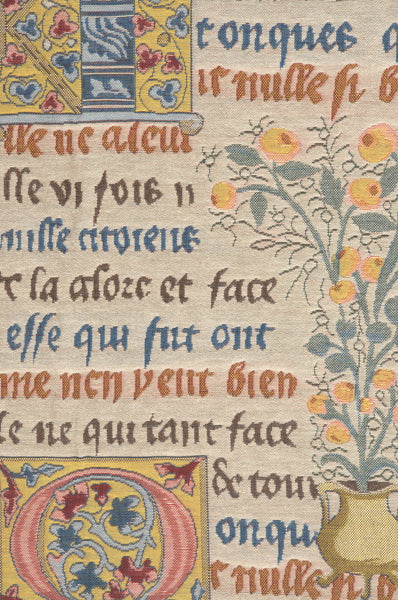 onques q
nulle si b
lle ne aleui
lle vi fois n
mille citoiens
la glore et face
esse qui fut ont
me nen veut bien
le ne qui tant face
de tout
onqu
nulle si b